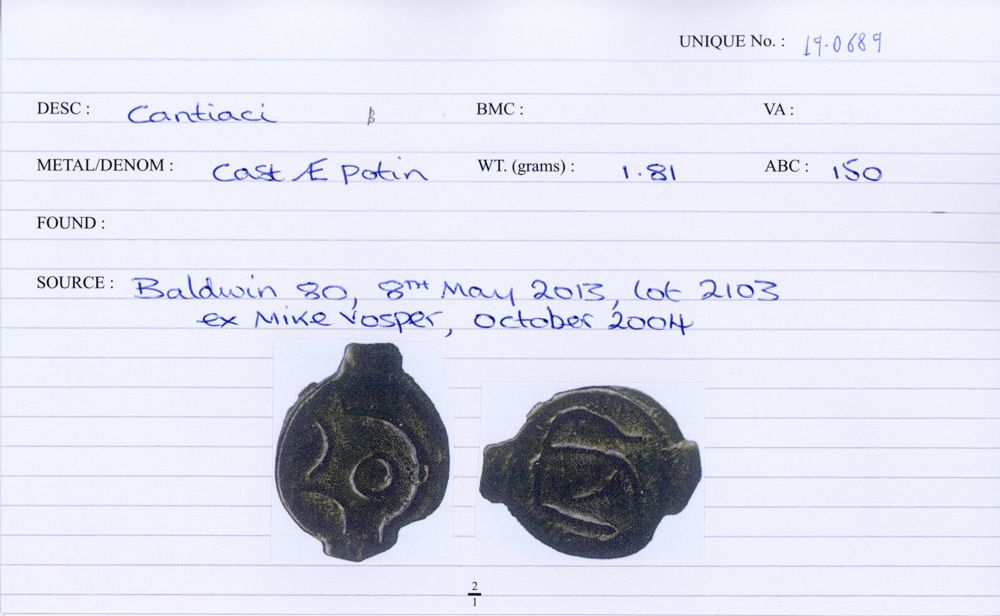 UNIQUE No. : 19.0689
DESC : Cantiaci B BMC : VA :
METAL/DENOM : Cast Æ Potin WT. (grams) : 1.81 ABC : 150
FOUND :
SOURCE : Baldwin 80, 8TH May 2013, lot 2103
ex Mike Vosper, October 2004
2
1